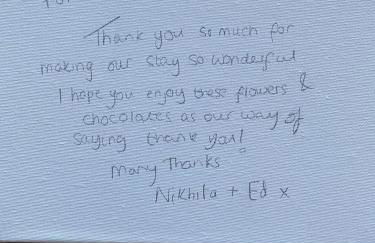 Thank you so much for
making our stay so wonderful
I hope you enjoy these flowers &
chocolates as our way of
saying thank you!
Many Thanks
Nikhita + Ed x